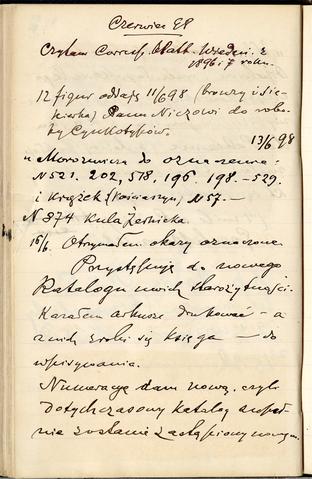 Czerwiec 98
Czytam Corresp. Blatt. Wiedeń. z
1896 i 7 roku.
12 figur oddaję 11/6 98 (brązy i sie-
kierka) Panu Niczowi do robo-
ty Cynkotypów.
13/6 98
u Morozewicza do oznaczenia:
N 521. 202, 518, 196. 198. – 529.
i Krążek (Kościeszyn) N 57. —
N 374 Kula Żernicka.
15/6. Otrzymałem okazy oznaczone.
Przystępuję do nowego
Katalogu moich starożytności.
Kazałem arkusze drukować – a
z nich zrobi się księga — do
wpisywania.
Numerację dam nową, czyli
dotychczasowy katalog zupeł-
nie zostanie zastąpiony nowym.